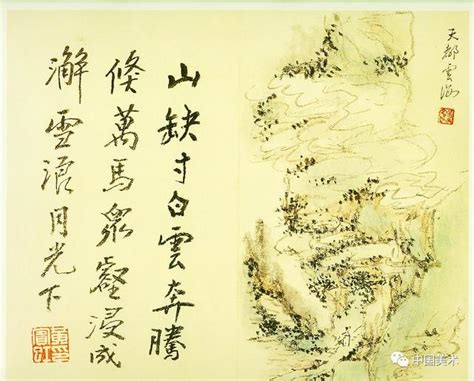 天都雲海
山缺寸白雲奔騰
倏萬馬眾壑浸成
澥雲浪月光下
中国美术